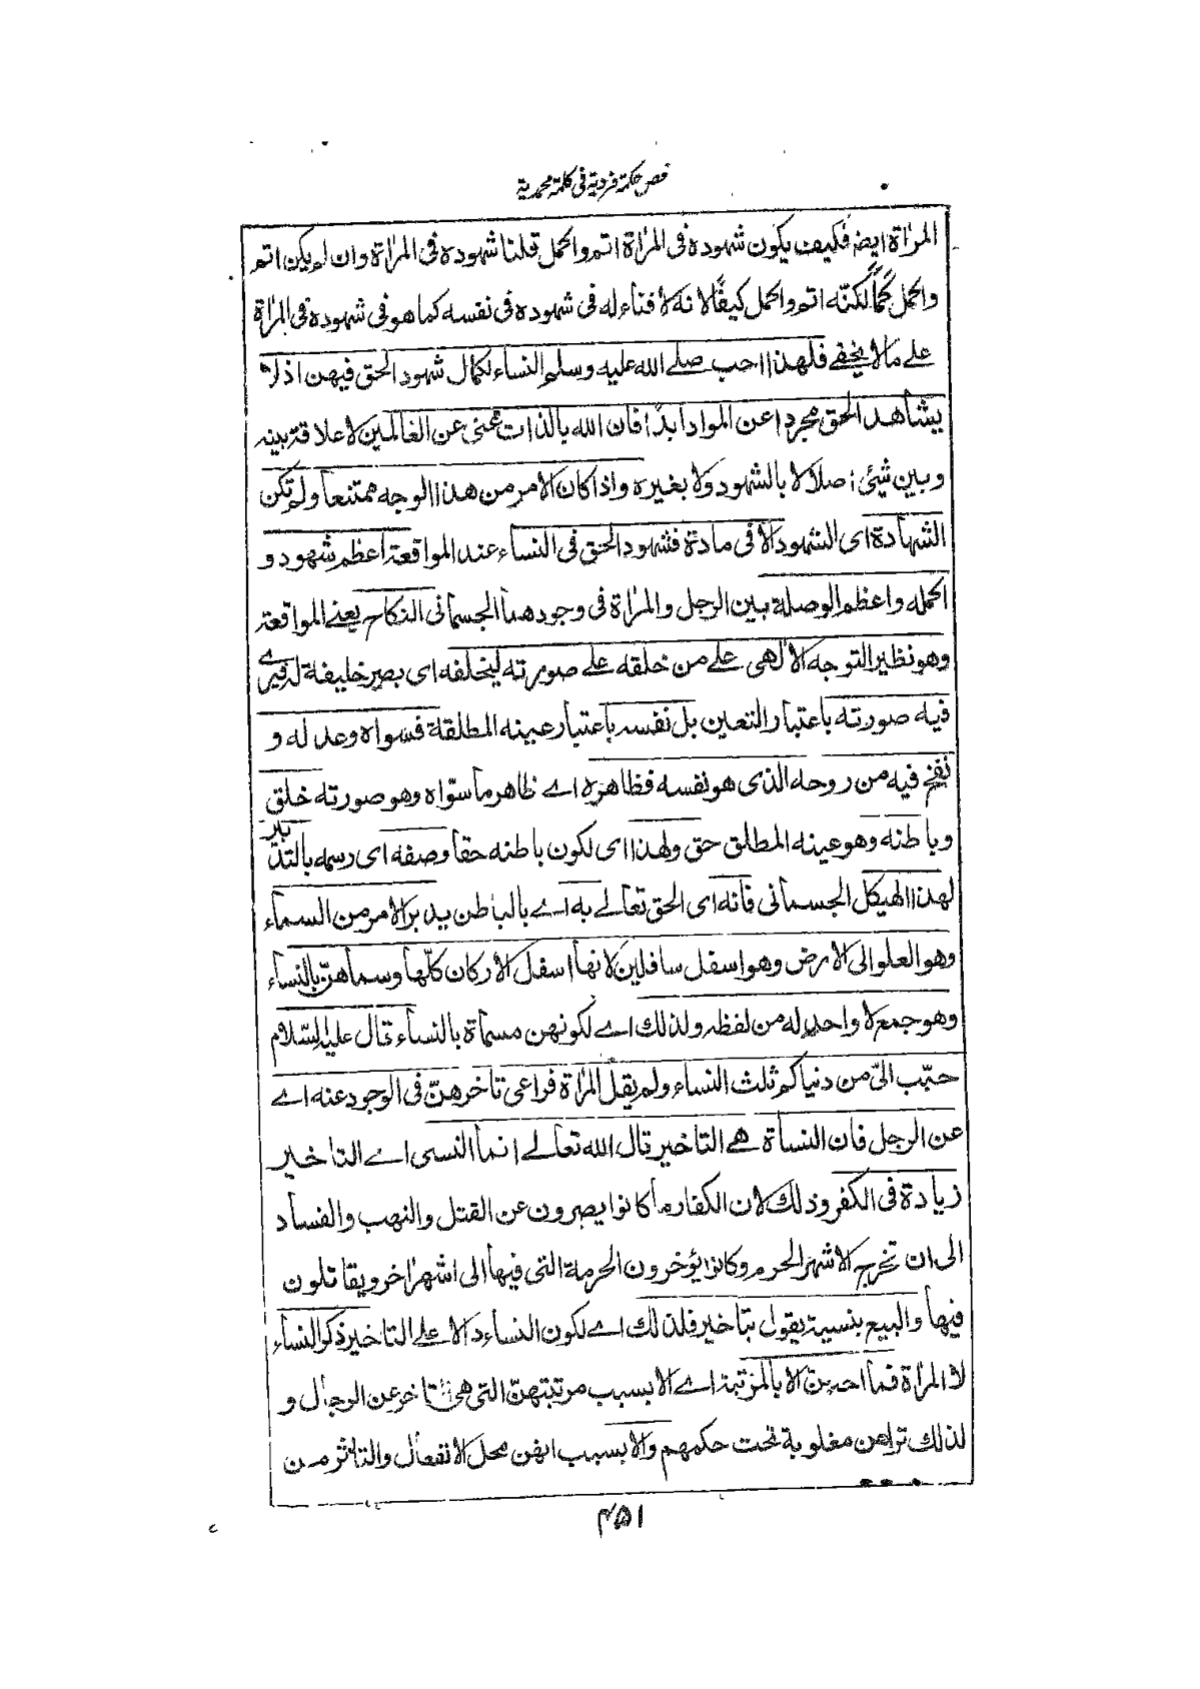 فص حكمة فردية فى كلمة محمدية
المرأة ايضا فكيف يكون شهوده فى المرأة اتم واكمل قلنا شهوده فى المرأة وان لم يكن اتم
واكمل كمًّا لكنّه اتم واكمل كيفًا لانه لا فناء له فى شهوده فى نفسه كما هو فى شهوده فى المرأة
على مالا يخفى فلهذا احب صلى الله عليه وسلم النساء لكمال شهود الحق فيهن اذ لا
يشاهد الحق مجردا عن المواد أبدًا فان الله بالذات غنى عن العالمين لا علاقة بينه
وبين شئ اصلا لا بالشهود ولا بغيره واذا كان الامر من هذا الوجه ممتنعا ولم تكن
الشهادة اى الشهود الا فى مادة فشهود الحق فى النساء عند المواقعة اعظم شهود و
اكمله واعظم الوصلة بين الرجل والمرأة فى وجود هذا الجسمانى النكاح يعنى المواقعة
وهو نظير التوجه الالهى على من خلقه على صورته ليخلفه اى يصير خليفة له فيرى
فيه صورته باعتبار التعين بل نفسه باعتبار عينه المطلقة فسواه وعدله و
نفخ فيه من روحه الذى هو نفسه فظاهره اى ظاهر ما سوّاه وهو صورته خلق
وباطنه وهو عينه المطلق حق ولهذا اى لكون باطنه حقا وصفه اى رسمه بالتدبير
لهذا الهيكل الجسمانى فانه اى الحق تعالى به اى بالباطن يدبر الامر من السماء
وهو العلو الى الارض وهو اسفل سافلين لانها اسفل الاركان كلّها وسماهنّ بالنساء
وهو جمع لا واحد له من لفظه ولذلك اى لكونهن مسماة بالنساء قال عليه السّلام
حبّب الىّ من دنياكم ثلث النساء ولم يقل المرأة فراعى تاخرهنّ فى الوجود عنه اى
عن الرجل فان النسأة هى التاخير قال الله تعالى انما النسى اى التاخير
زيادة فى الكفر وذلك لان الكفار ما كانوا يصبرون عن القتل والنهب والفساد
الى ان تخرج الاشهر الحرم وكانوا يؤخرون الحرمة التى فيها الى اشهر اخر ويقاتلون
فيها والبيع بنسيئة يقول بتاخير فلذلك اى لكون النساء دالا على التاخير ذكر النساء
لا المرأة فما احبهن الا بالمرتبة اى الا بسبب مرتبتهنّ التى هى التاخر عن الرجال و
لذلك تراهن مغلوبة تحت حكمهم والا بسبب انهن محل الانفعال والتأثر من
٤٥١